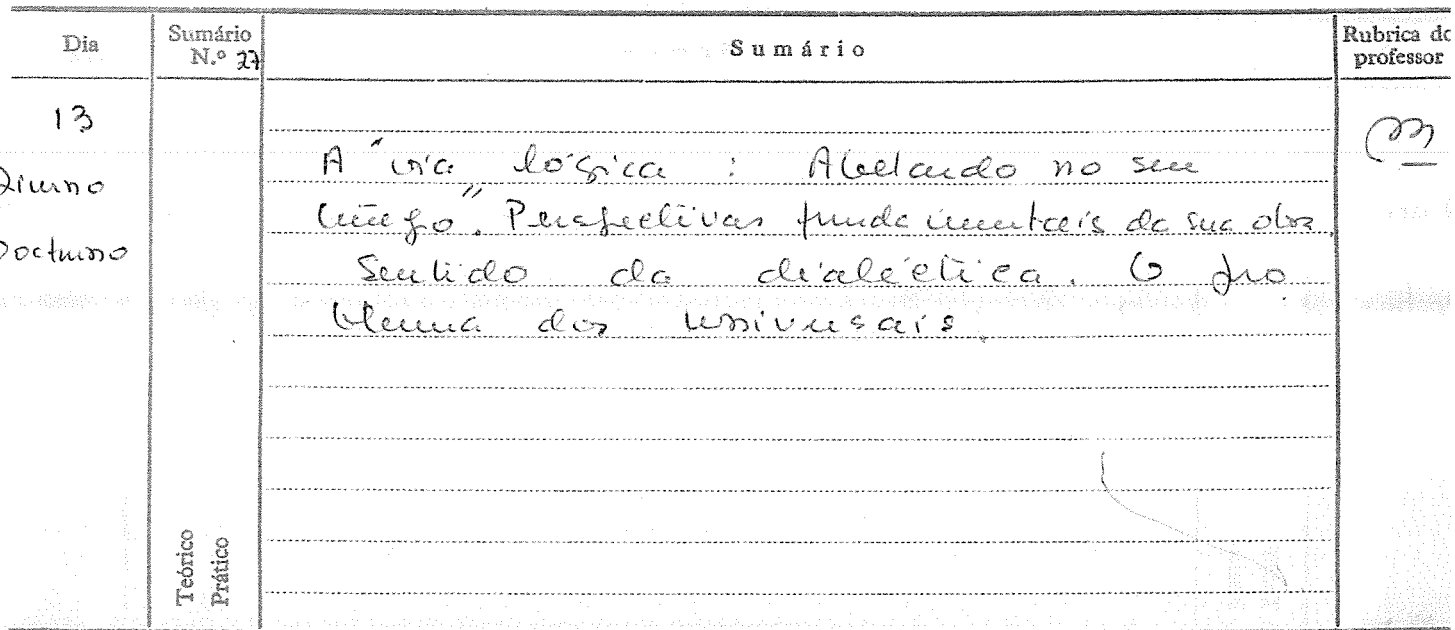 Dia
Sumário
N.º 27
Sumário
Rubrica do
professor
13
Diurno
Nocturno
A "via lógica : Abelardo no seu
tempo". Perspectivas fundamentais da sua obra.
Sentido da dialéctica. O pro
blema dos universais.
Teórico
Prático